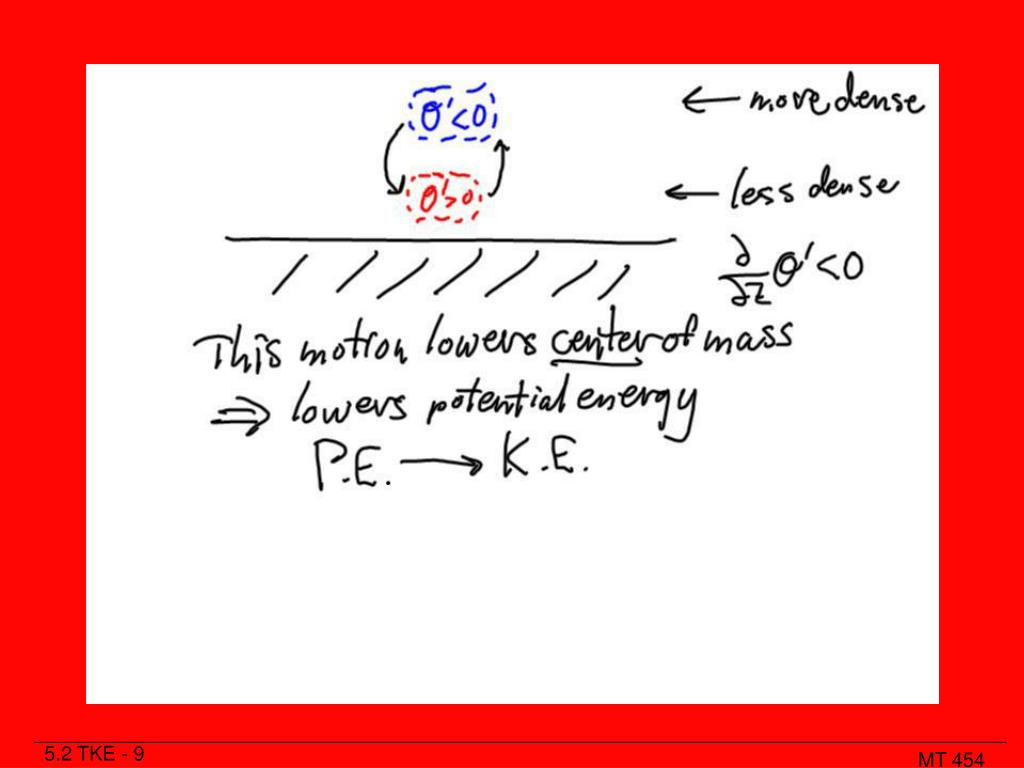 θ'<0 ← more dense
θ'>0 ← less dense
∂/∂z θ'<0
This motion lowers center of mass
⇒ lowers potential energy
P.E. → K.E.
5.2 TKE - 9
MT 454